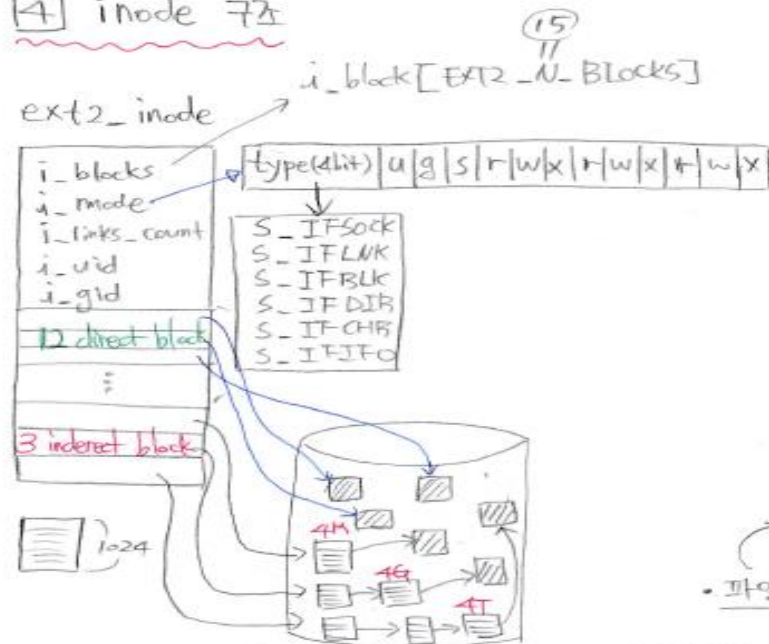 4 inode 구조
15
"
i_block[EXT2_N_BLOCKS]
ext2_inode
i_blocks
i_mode
i_links_count
i_uid
i_gid
12 direct block
⋮
3 inderect block
type(4bit) | u | g | s | r | w | x | r | w | x | r | w | x
S_IFSOCK
S_IFLNK
S_IFBLK
S_IFDIR
S_IFCHR
S_IFIFO
1024
4M
4G
4T